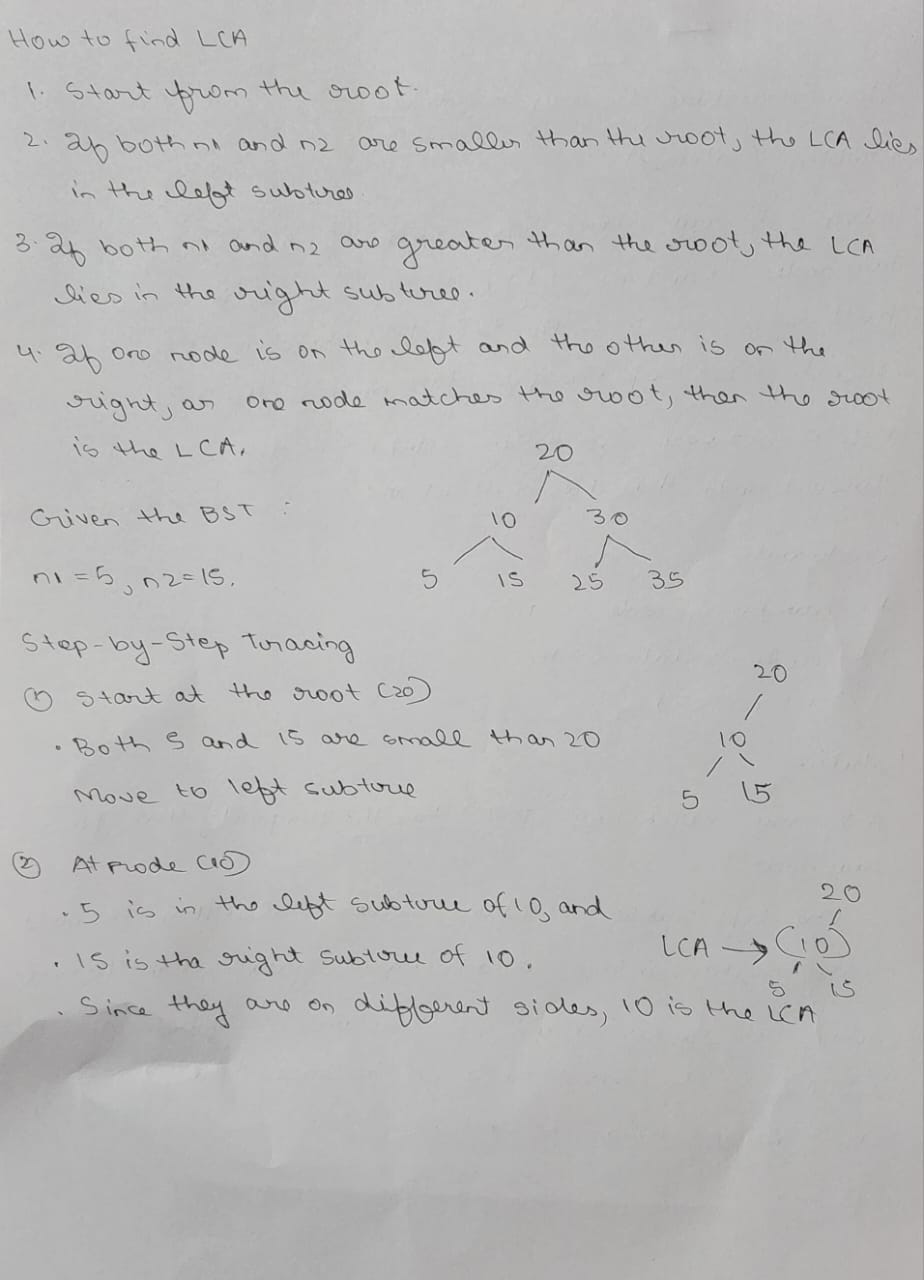 How to find LCA
1. Start from the root.
2. If both n1 and n2 are smaller than the root, the LCA lies
in the left subtree.
3. If both n1 and n2 are greater than the root, the LCA
lies in the right subtree.
4. If one node is on the left and the other is on the
right, or one node matches the root, then the root
is the LCA.
20
Given the BST :
10 30
n1 = 5, n2 = 15.
5 15 25 35
Step-by-Step Tracing
① Start at the root (20)
20
• Both 5 and 15 are small than 20
10
Move to left subtree
5 15
② At node (10)
20
• 5 is in the left subtree of 10, and
LCA → (10)
• 15 is tha right subtree of 10.
5 15
• Since they are on different sides, 10 is the LCA